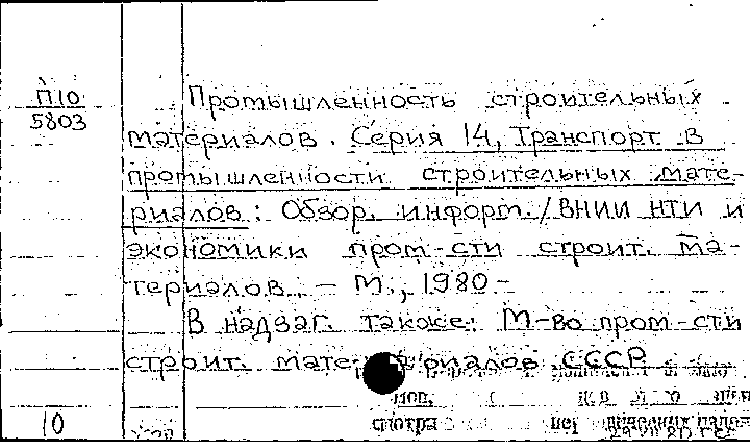 П10
5803
Промышленность строительных
материалов. Серия 14, Транспорт в
промышленности строительных мате-
риалов: Обзор. информ. / ВНИИ НТИ и
экономики пром-сти строит. ма-
териалов. – М., 1980 –
В надзаг. также: М-во пром-сти
строит. материалов СССР
10